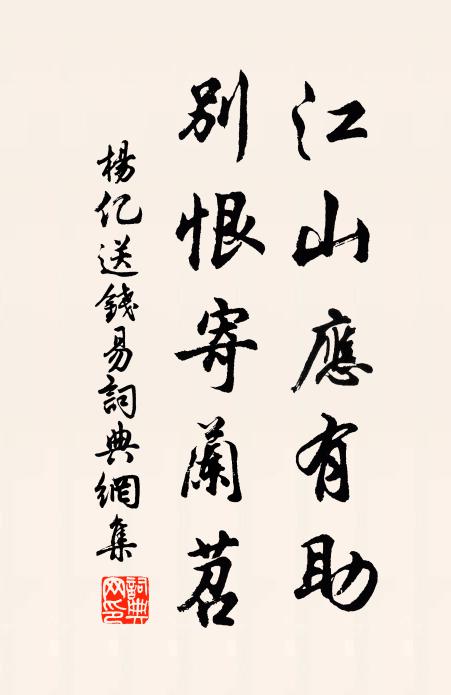 江山應有助
別恨寄蘭苕
楊億送錢易詞典網集
詞典網印